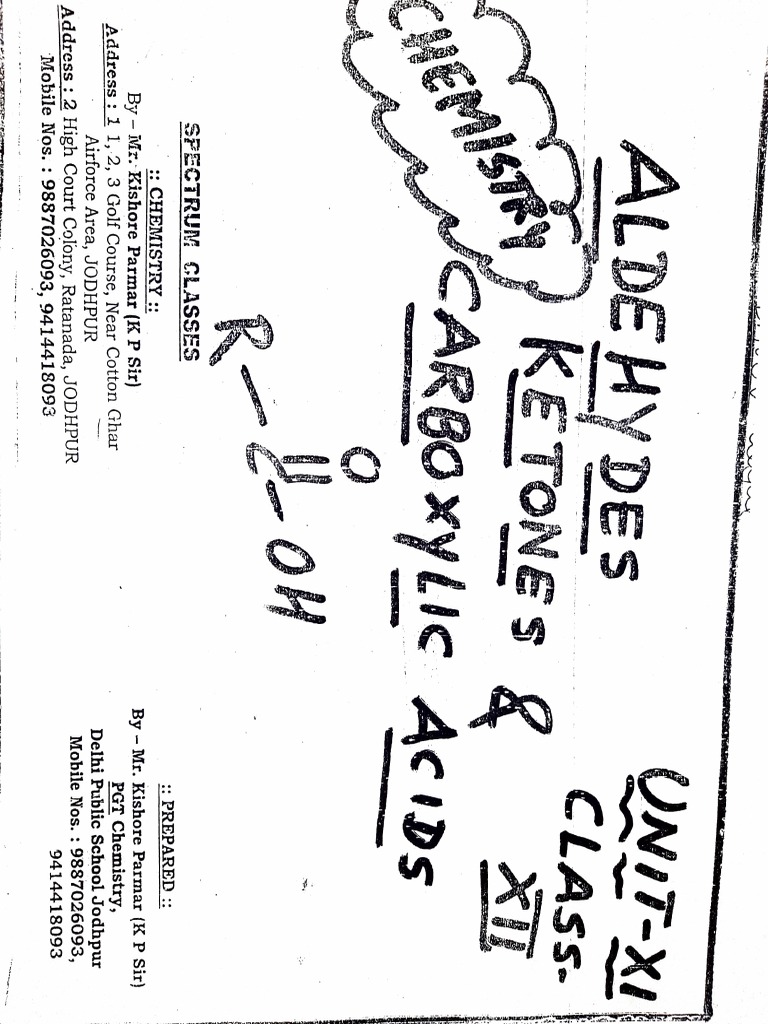 UNIT-XI
ALDEHYDES
CLASS-
XII
KETONES &
CHEMISTRY
CARBOXYLIC ACIDS
O
R-C-OH
SPECTRUM CLASSES
:: CHEMISTRY ::
By – Mr. Kishore Parmar (K P Sir)
Address : 1 1, 2, 3 Golf Course, Near Cotton Ghar
Airforce Area, JODHPUR
Address : 2 High Court Colony, Ratanada, JODHPUR
Mobile Nos. : 9887026093, 9414418093
:: PREPARED ::
By – Mr. Kishore Parmar (K P Sir)
PGT Chemistry,
Delhi Public School Jodhpur
Mobile Nos. : 9887026093,
9414418093